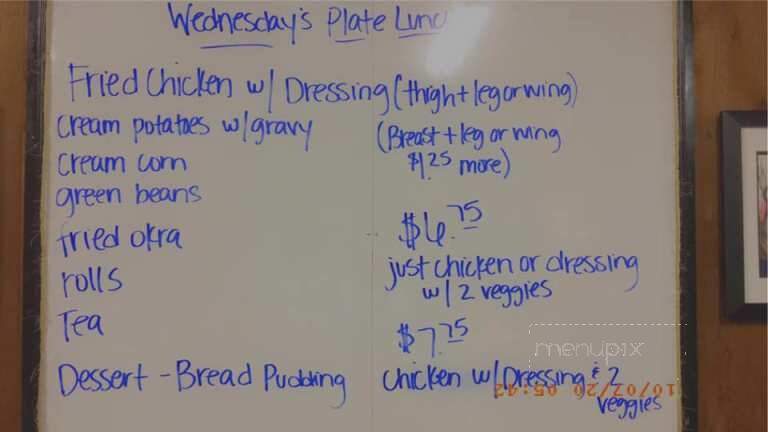 Wednesday's Plate Lunc
Fried Chicken w/ Dressing (thigh + leg or wing)
Cream potatoes w/gravy
(Breast + leg or wing
$1.25 more)
Cream corn
green beans
fried okra
$6.75
rolls
just chicken or dressing
w/ 2 veggies
Tea
$7.75
menupix
Dessert - Bread Pudding
Chicken w/ Dressing & 2
veggies